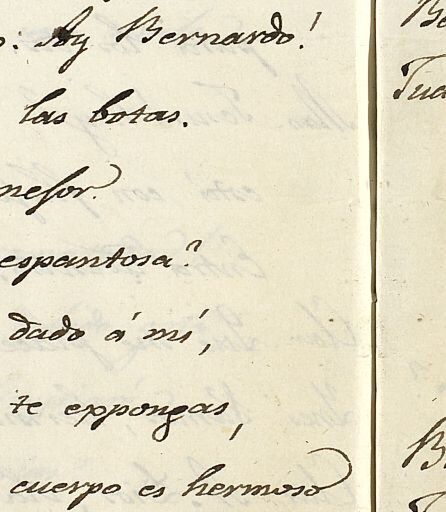 Ay Bernardo!
las botas.
espantosa?
dado á mí,
te expongas,
cuerpo es hermoso